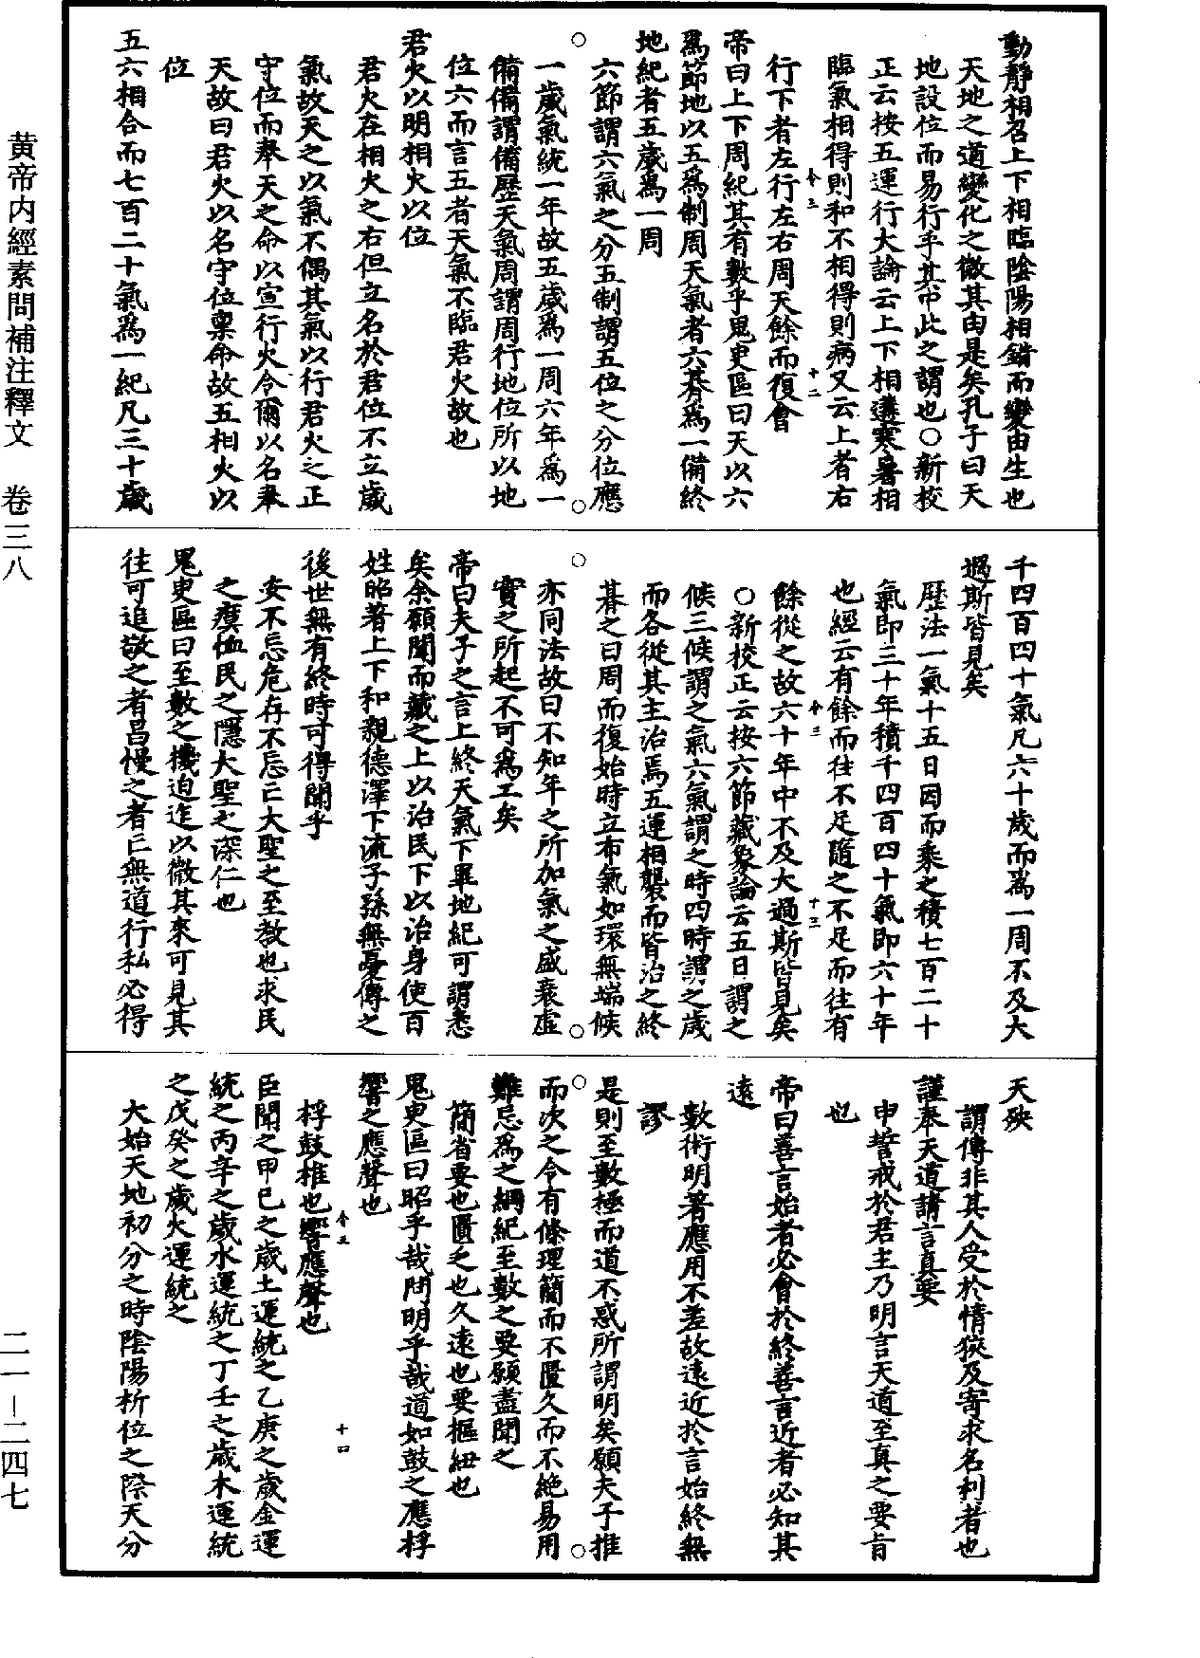 黄帝内經素問補注釋文　卷三八
二一—二四七
動靜相召上下相臨陰陽相錯而變由生也
天地之道變化之微其由是矣孔子曰天
地設位而易行乎其中此之謂也○新校
正云按五運行大論云上下相遘寒暑相
臨氣相得則和不相得則病又云上者右
行下者左行左右周天餘而復會
帝曰上下周紀其有數乎鬼臾區曰天以六
爲節地以五爲制周天氣者六朞爲一備終
地紀者五歲爲一周
六節謂六氣之分五制謂五位之分位應
一歲氣統一年故五歲爲一周六年爲一
備備謂備歷天氣周謂周行地位所以地
位六而言五者天氣不臨君火故也
君火以明相火以位
君火在相火之右但立名於君位不立歲
氣故天之以氣不偶其氣以行君火之正
守位而奉天之命以宣行火令爾以名奉
天故曰君火以名守位稟命故五相火以
位
五六相合而七百二十氣爲一紀凡三十歲
千四百四十氣凡六十歲而爲一周不及大
過斯皆見矣
歷法一氣十五日因而乘之積七百二十
氣即三十年積千四百四十氣即六十年
也經云有餘而往不足隨之不足而往有
餘從之故六十年中不及大過斯皆見矣
○新校正云按六節藏象論云五日謂之
候三候謂之氣六氣謂之時四時謂之歲
而各從其主治焉五運相襲而皆治之終
朞之日周而復始時立布氣如環無端候
亦同法故曰不知年之所加氣之盛衰虛
實之所起不可爲工矣
帝曰夫子之言上終天氣下畢地紀可謂悉
矣余願聞而藏之上以治民下以治身使百
姓昭著上下和親德澤下流子孫無憂傳之
後世無有終時可得聞乎
安不忘危存不忘亡大聖之至教也求民
之瘼恤民之隱大聖之深仁也
鬼臾區曰至數之機迫迮以微其來可見其
往可追敬之者昌慢之者亡無道行私必得
天殃
謂傳非其人受於情狹及寄求名利者也
謹奉天道請言真要
申誓戒於君主乃明言天道至真之要旨
也
帝曰善言始者必會於終善言近者必知其
遠
數術明著應用不差故遠近於言始終無
謬
是則至數極而道不惑所謂明矣願夫子推
而次之令有條理簡而不匱久而不絶易用
難忘爲之綱紀至數之要願盡聞之
簡省要也匱乏也久遠也要樞紐也
鬼臾區曰昭乎哉問明乎哉道如鼓之應桴
響之應聲也
桴鼓椎也響應聲也
臣聞之甲己之歲土運統之乙庚之歲金運
統之丙辛之歲水運統之丁壬之歲木運統
之戊癸之歲火運統之
大始天地初分之時陰陽析位之際天分